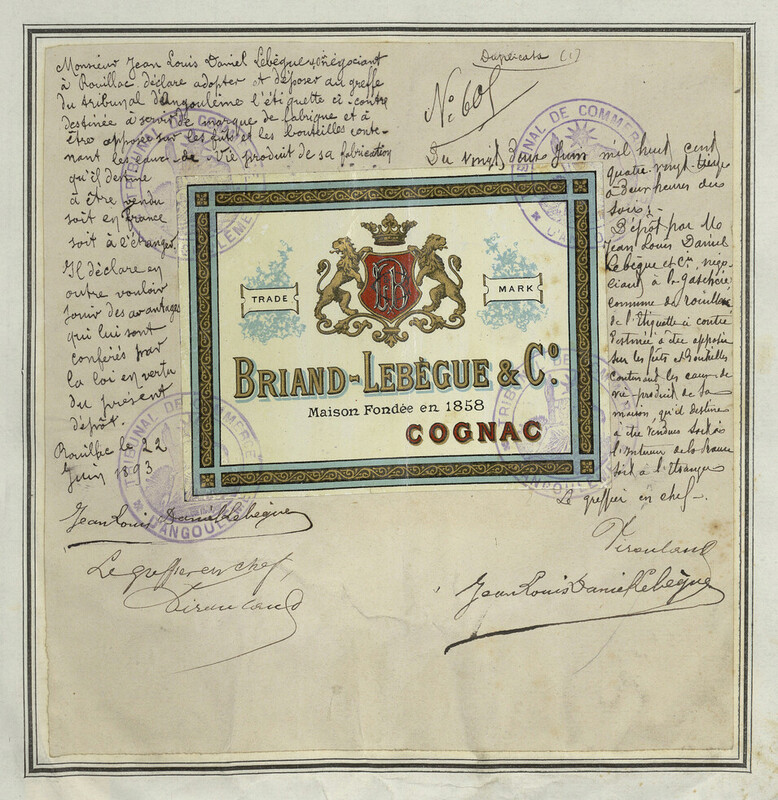 Monsieur Jean Louis Daniel Lebègue négociant
à Rouillac déclare adopter et déposer au greffe
du tribunal d'Angoulême l'étiquette ci-contre
destinée à servir de marque de fabrique et à
être apposée sur les fûts et les bouteilles conte-
nant les eaux-de-vie produit de sa fabrication
qu'il destine
à être vendu
soit en France
soit à l'étranger.
Il déclare en
outre vouloir
jouir des avantages
qui lui sont
conférés par
la loi en vertu
du présent
dépôt.
Rouillac le 22
Juin 1893
Jean Louis Daniel Lebègue
Le greffier en chef,
Duplicata (1)
No 605
Du vingt deux Juin mil huit cent
quatre vingt treize
à deux heures du
soir.
Dépôt par M
Jean Louis Daniel
Lebègue et Cie, négo-
ciant à la
commune de Rouillac
de l'Etiquette ci contre
destinée à être apposée
sur les fûts et bouteilles
contenant les eaux de
vie produit de sa
maison, qu'il destine
à être vendues soit à
l'intérieur de la France
soit à l'Etranger
Le greffier en chef.
Jean Louis Daniel Lebègue
TRADE MARK
BRIAND-LEBÈGUE & Cº.
Maison Fondée en 1858
COGNAC
TRIBUNAL DE COMMERCE
D'ANGOULÊME
TRIBUNAL DE COMMERCE
D'ANGOULÊME